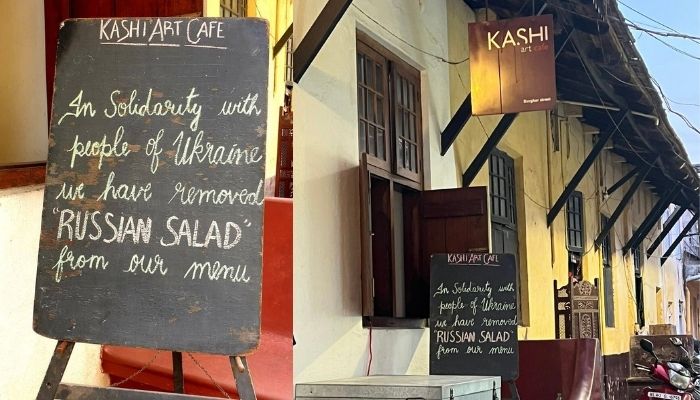 KASHI ART CAFE
In Solidarity with
people of Ukraine
we have removed
"RUSSIAN SALAD"
from our menu
KASHI
art cafe
Burgher street
KASHI ART CAFE
In Solidarity with
people of Ukraine
we have removed
"RUSSIAN SALAD"
from our menu